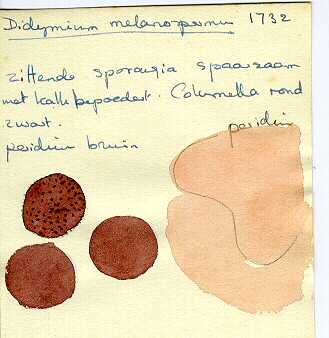 Didymium melanospermum 1732
zittende sporangia spaarzaam
met kalk bepoedert. Columella rond
zwart.
peridium
peridium bruin